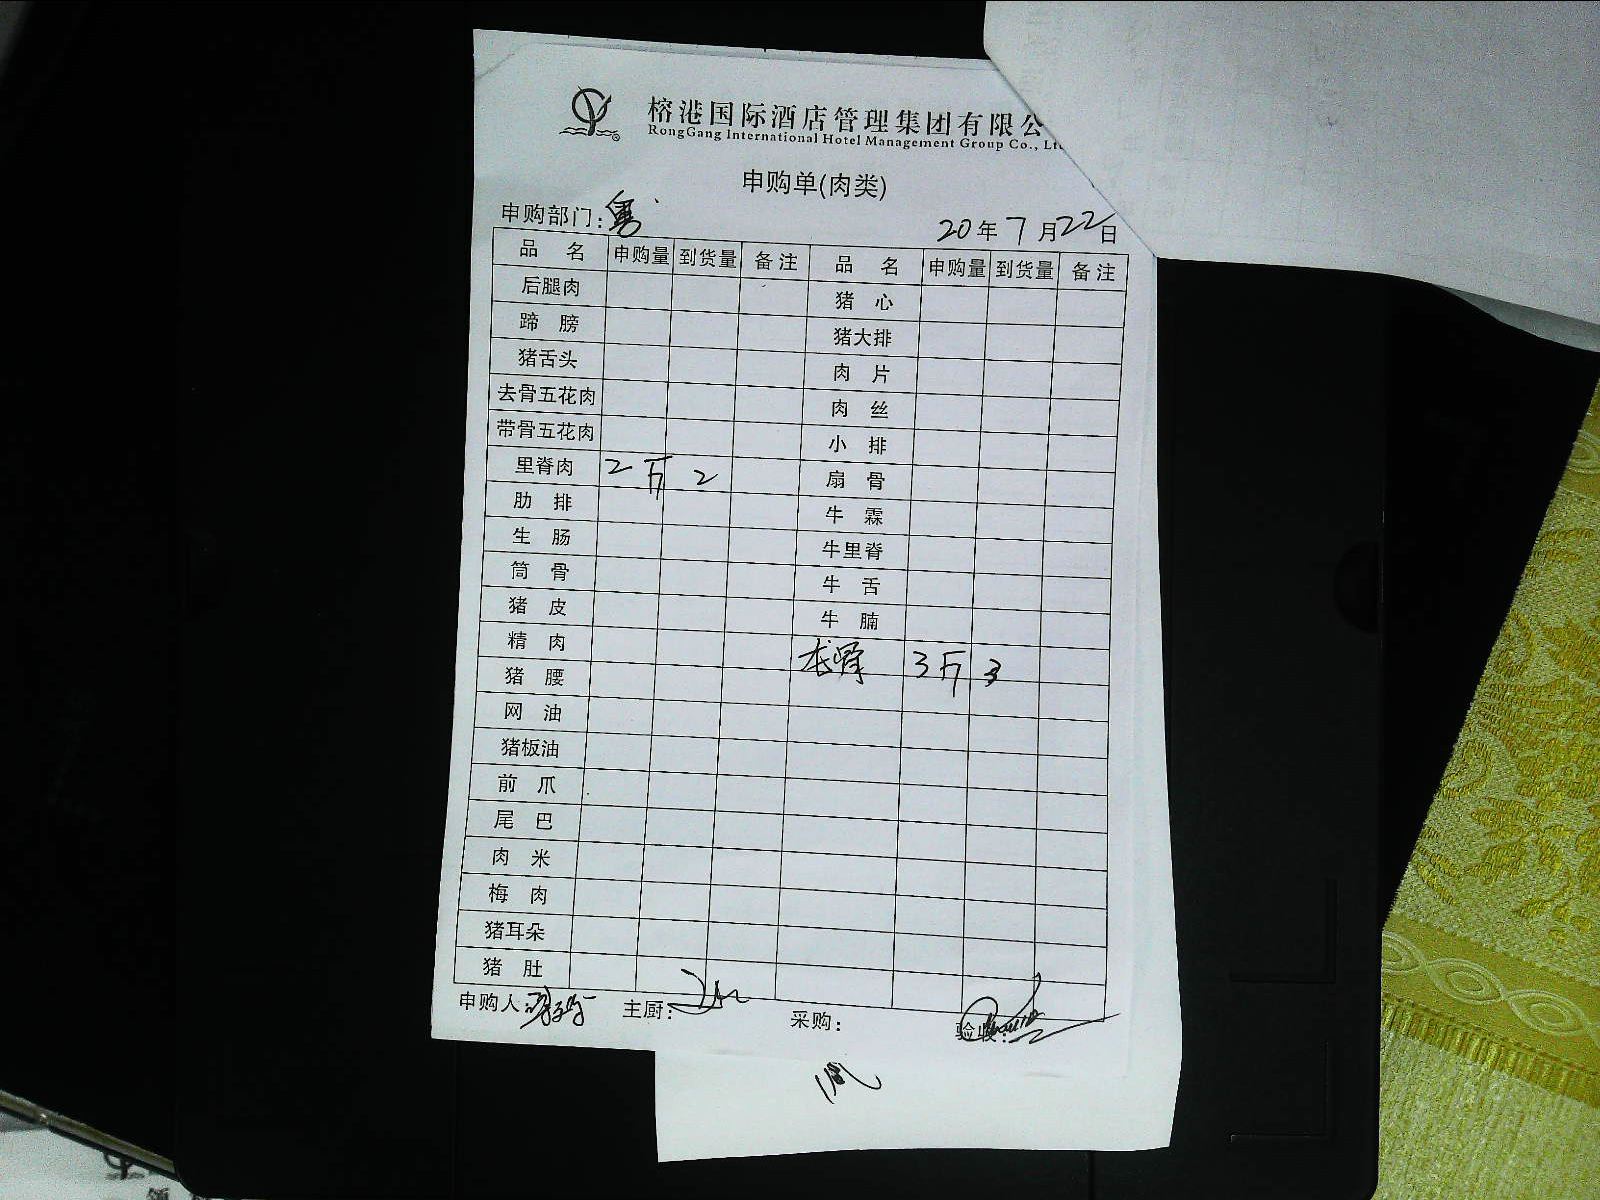 榕港国际酒店管理集团有限公
RongGang International Hotel Management Group Co., Lt
申购单(肉类)
申购部门: 粤
20年7月22日
品 名 申购量 到货量 备注 品 名 申购量 到货量 备注
后腿肉 猪 心
蹄 膀 猪大排
猪舌头 肉 片
去骨五花肉 肉 丝
带骨五花肉 小 排
里脊肉 2斤 2 扇 骨
肋 排 牛 霖
生 肠 牛里脊
筒 骨 牛 舌
猪 皮 牛 腩
精 肉 龙骨 3斤 3
猪 腰
网 油
猪板油
前 爪
尾 巴
肉 米
梅 肉
猪耳朵
猪 肚
申购人: 主厨: 采购: 验收: